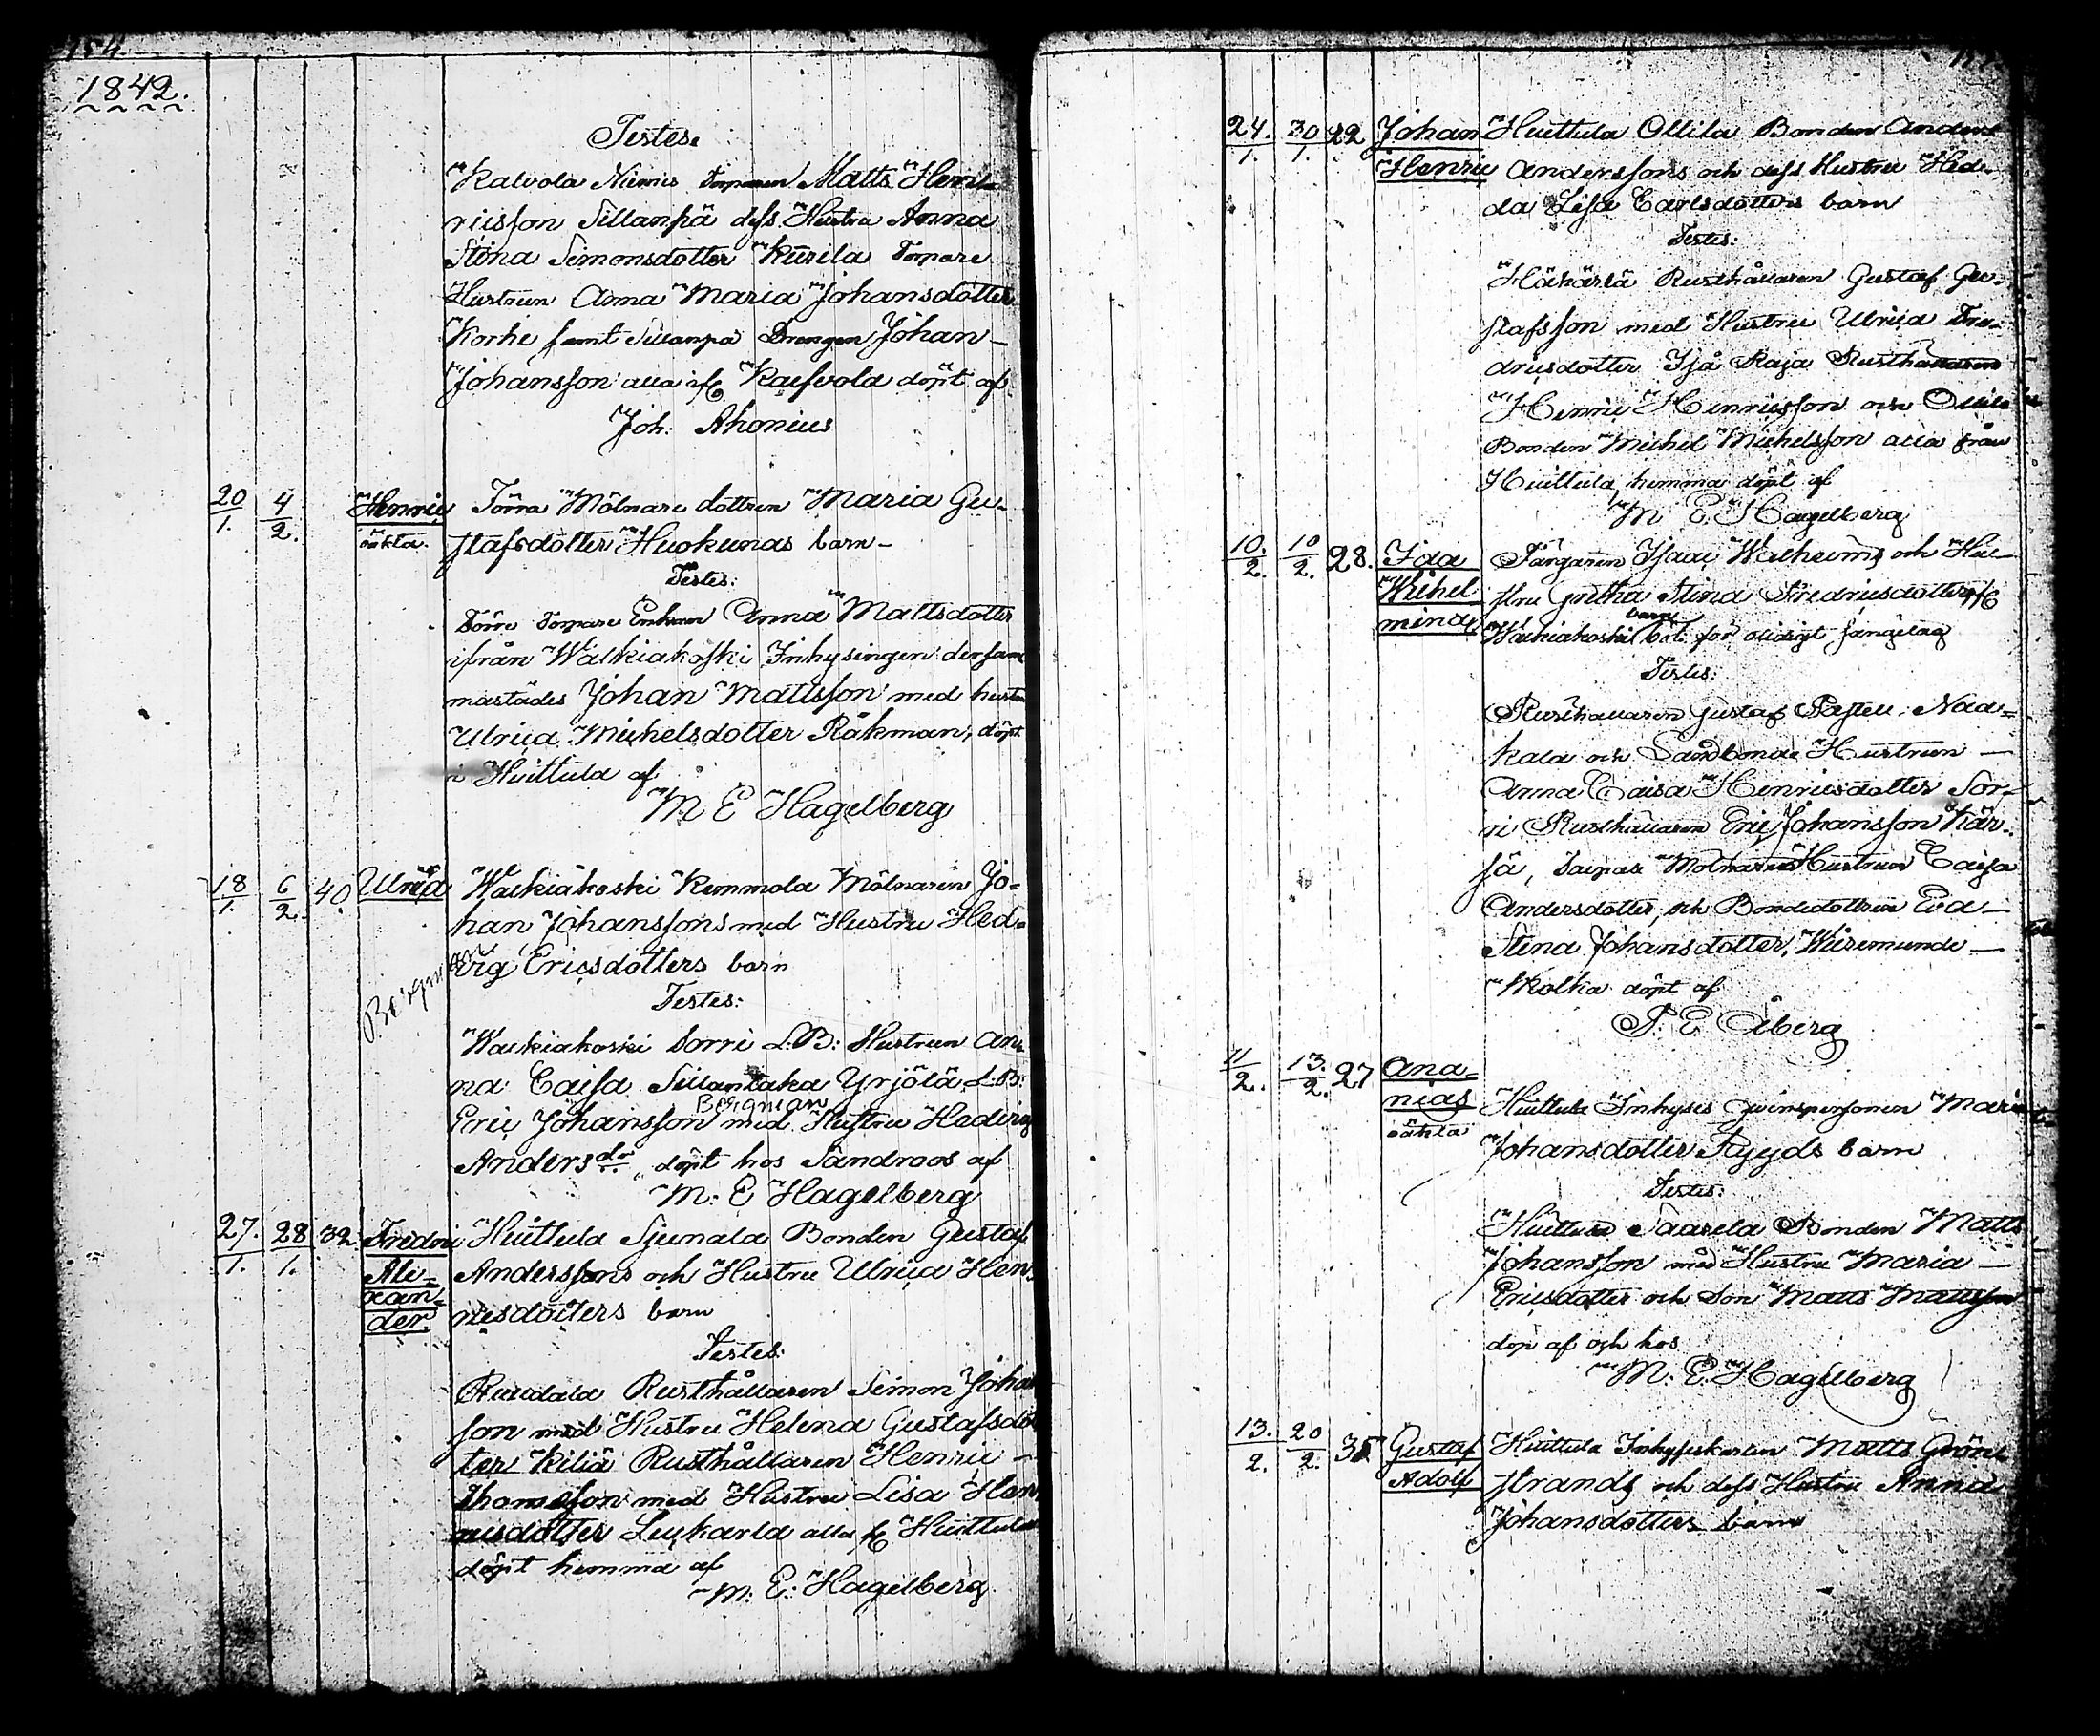 154
1842.
Testes.
Kalvola Niemis Torparen Matts Hen-
ricsson Sillanpä dess Hustru Anna
Stina Simonsdotter Kurila Torpare
Hustrun Anna Maria Johansdotter
Korke samt Sillanpä Drengen Johan
Johansson alla ifr Kalfvola döpt af
Joh: Ahonius
20/1. 4/2. Henric Törra Mölnare dottren Maria Gu-
oäkta. stafsdotter Huokunas barn
Testes:
Törre Torpare Enkan Anna Mattsdotter
ifrån Walkiakoski Inhysingen dersam
mastädes Johan Mattsson med hustru
Ulrica Michelsdotter Råkman, döpt
i Huittula af
M E Hagelberg
18/1. 6/2. 40. Ulrica Walkiakoski Kemmola Mölnaren Jo-
han Johanssons med Hustru Hed-
vig Ericsdotters barn
Bergman
Testes:
Walkiakoski Sorri L:B: Hustrun An-
na Caisa Sillantaka Yrjölä L:B:
Bergman
Eric Johansson med Hustru Hedvig
Andersdr döpt hos Sandroos af
M: E Hagelberg
27./1. 28/1. 32 Fredric Huittula Sjunala Bonden Gustaf
Ale- Anderssons och Hustru Ulrica Hen-
xan- ricsdotters barn
der.
Testes:
Ruudala Rusthållaren Simon Johans
son med Hustru Helena Gustafsdot
ter Kiliä Rusthållaren Henric
Thomasson med Hustru Lisa Hen
ricsdotter Leukarla alla fr Huittula
döpt hemma af
M: E: Hagelberg
24./1. 30/1. 42 Johan Huittula Ollila Bonden Anders
Henric Anderssons och dess Hustru Hed-
da Lisa Carlsdotters barn
Testes:
Häkärlä Rusthållaren Gustaf Gu-
stafsson med Hustru Ulrica Fre-
dricsdotter Isjå Raja Rusthållaren
Henric Henricsson och Ollila
Bonden Michel Michelsson alla från
Huittula hemma döpt af
M E Hagelberg
10./2. 10/2. 28. Ida Färgaren Isaac Wilhelms och Hu-
Wilhel stru Gretha Stina Fredricsdotters fr
barn
mina Walkiakoski böt. för olidigt sängelag
Testes:
Rusthållaren Gustaf Nau-
kala och Landbonde Hustrun
Anna Caisa Henricsdotter Sor-
ri Rusthållaren Eric Johansson Kär-
sä, Saipas Molnare Hustrun Caisa
Andersdotter, och Bondedottren Eva
Stina Johansdotter, Wiremunde
Kolka döpt af
F: E Åberg
11/2. 13./2. 27 Ana-
nias Huittula Inhyses qvinspersonen Maria
oäkta Johansdotter barn
Testes:
Huittula Saarela Bonden Matts
Johansson med Hustru Maria
Ericsdotter och Son Matts Mattsson
döp af och hos
M: E: Hagelberg
13./2. 20/2. 35 Gustaf Huittula Inhyseskarlen Matts Grön-
Adolf strands och dess Hustru Anna
Johansdotters barn